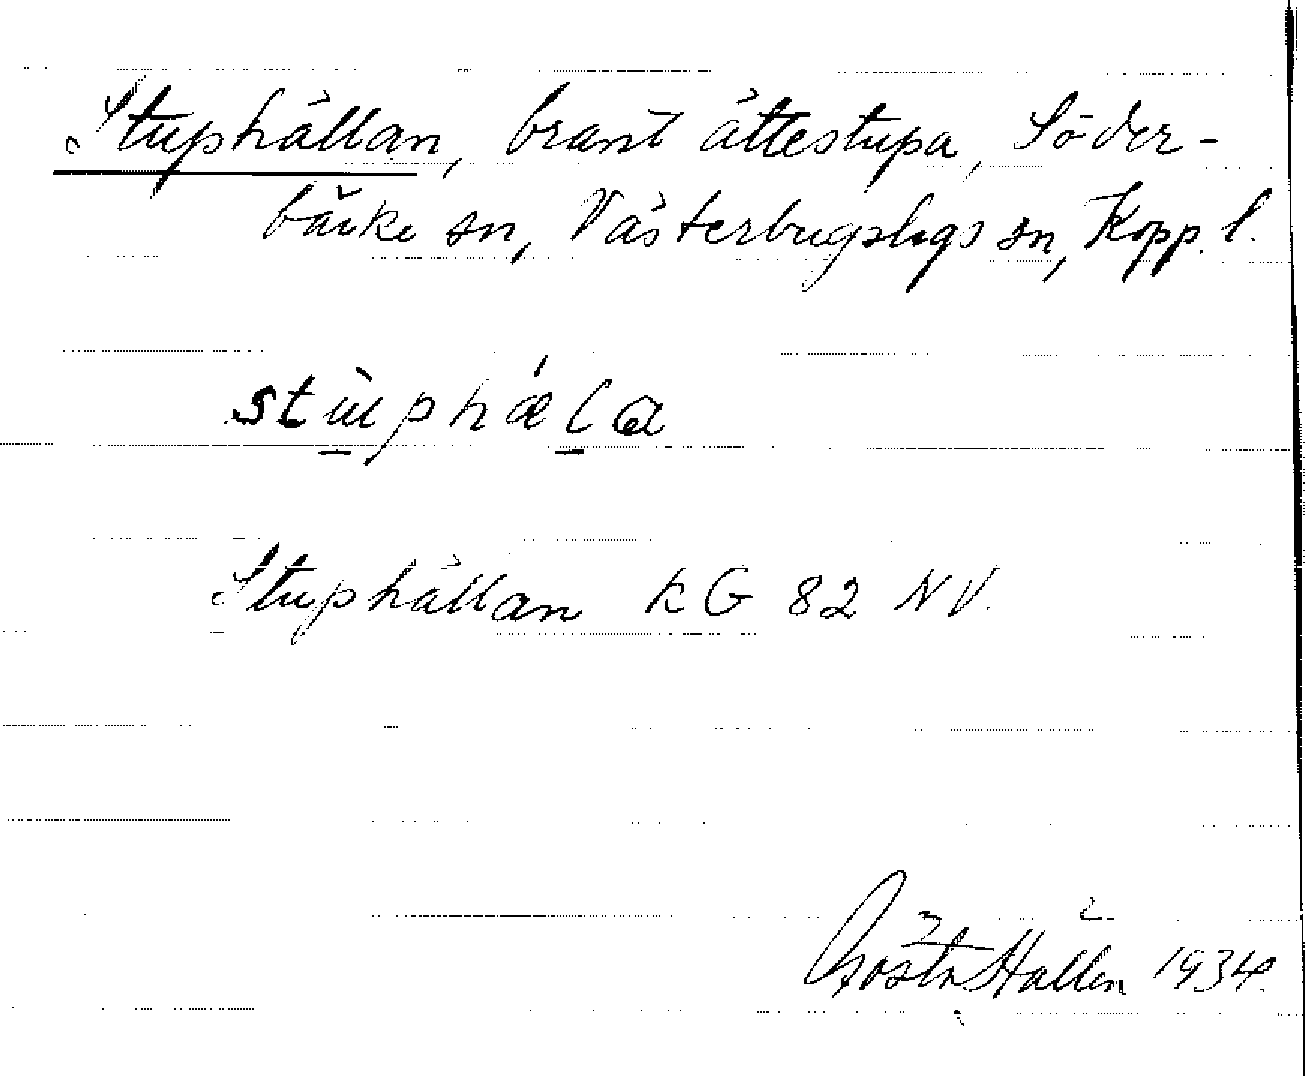 Stuphällan, brant ättestupa, Söder-
bärke sn, Västerbergslags sn, Kopp. l.
stùphǽla
Stuphällan kG 82 NV.
Gösta Hallén 1934.